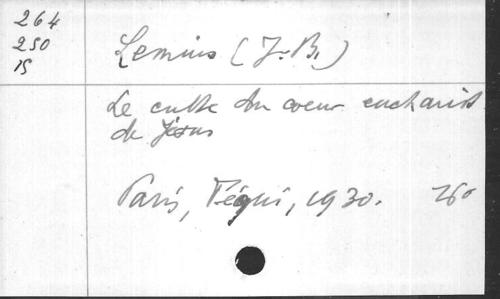 264
250
15
Lemius (J-B.)
Le culte du coeur eucharist
de Jésus
Paris, Téqui, 1930. 16°